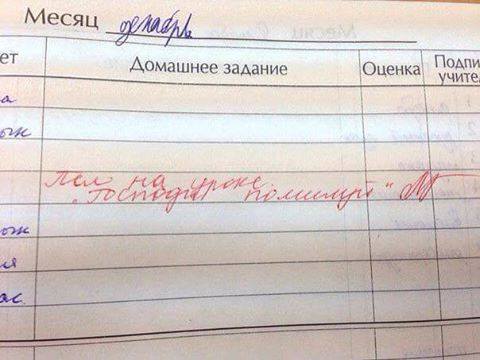 Месяц декабрь
ет Домашнее задание Оценка Подпи
учител
а
Пел на уроке
"Господи помилуй"
я